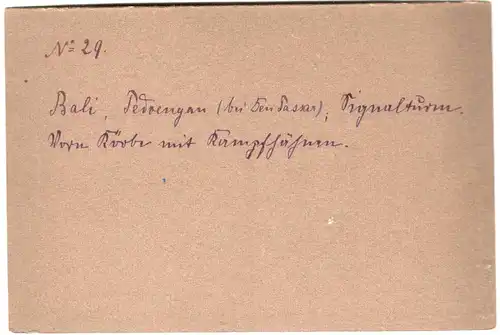 No 29.
Bali, Pedoengan (bei Den Passar); Signalturm.
Vorn Körbe mit Kampfhähnen.